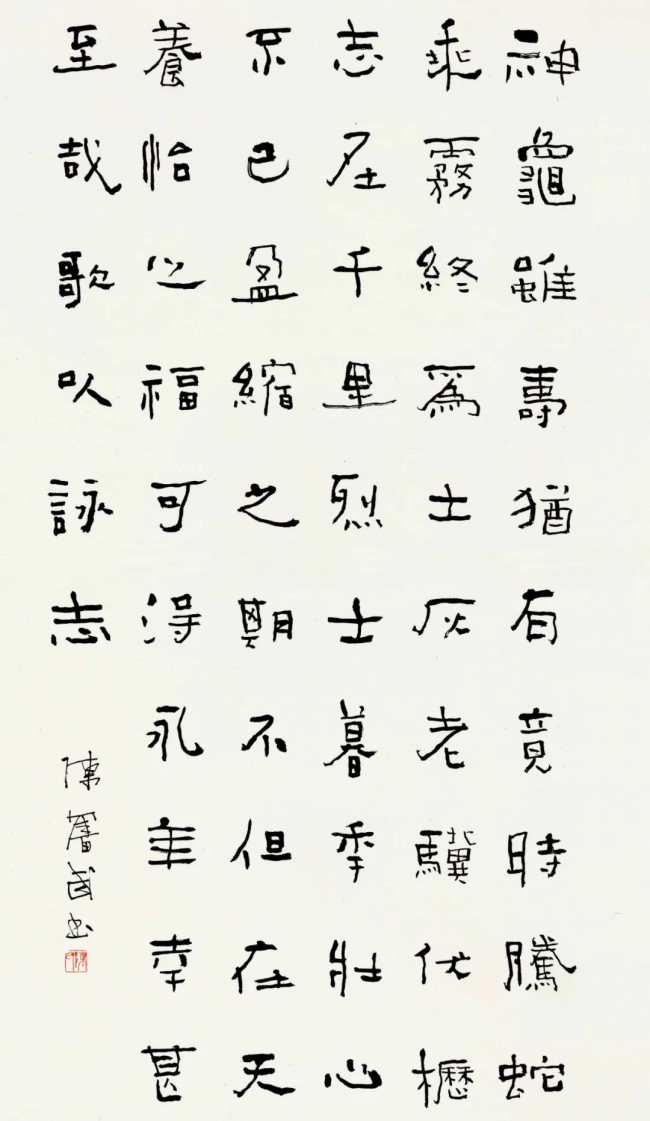 神龜雖壽猶有竟時騰蛇
乘霧終爲土灰老驥伏櫪
志在千里烈士暮年壯心
不已盈縮之期不但在天
養怡之福可得永年幸甚
至哉歌以詠志
陳书